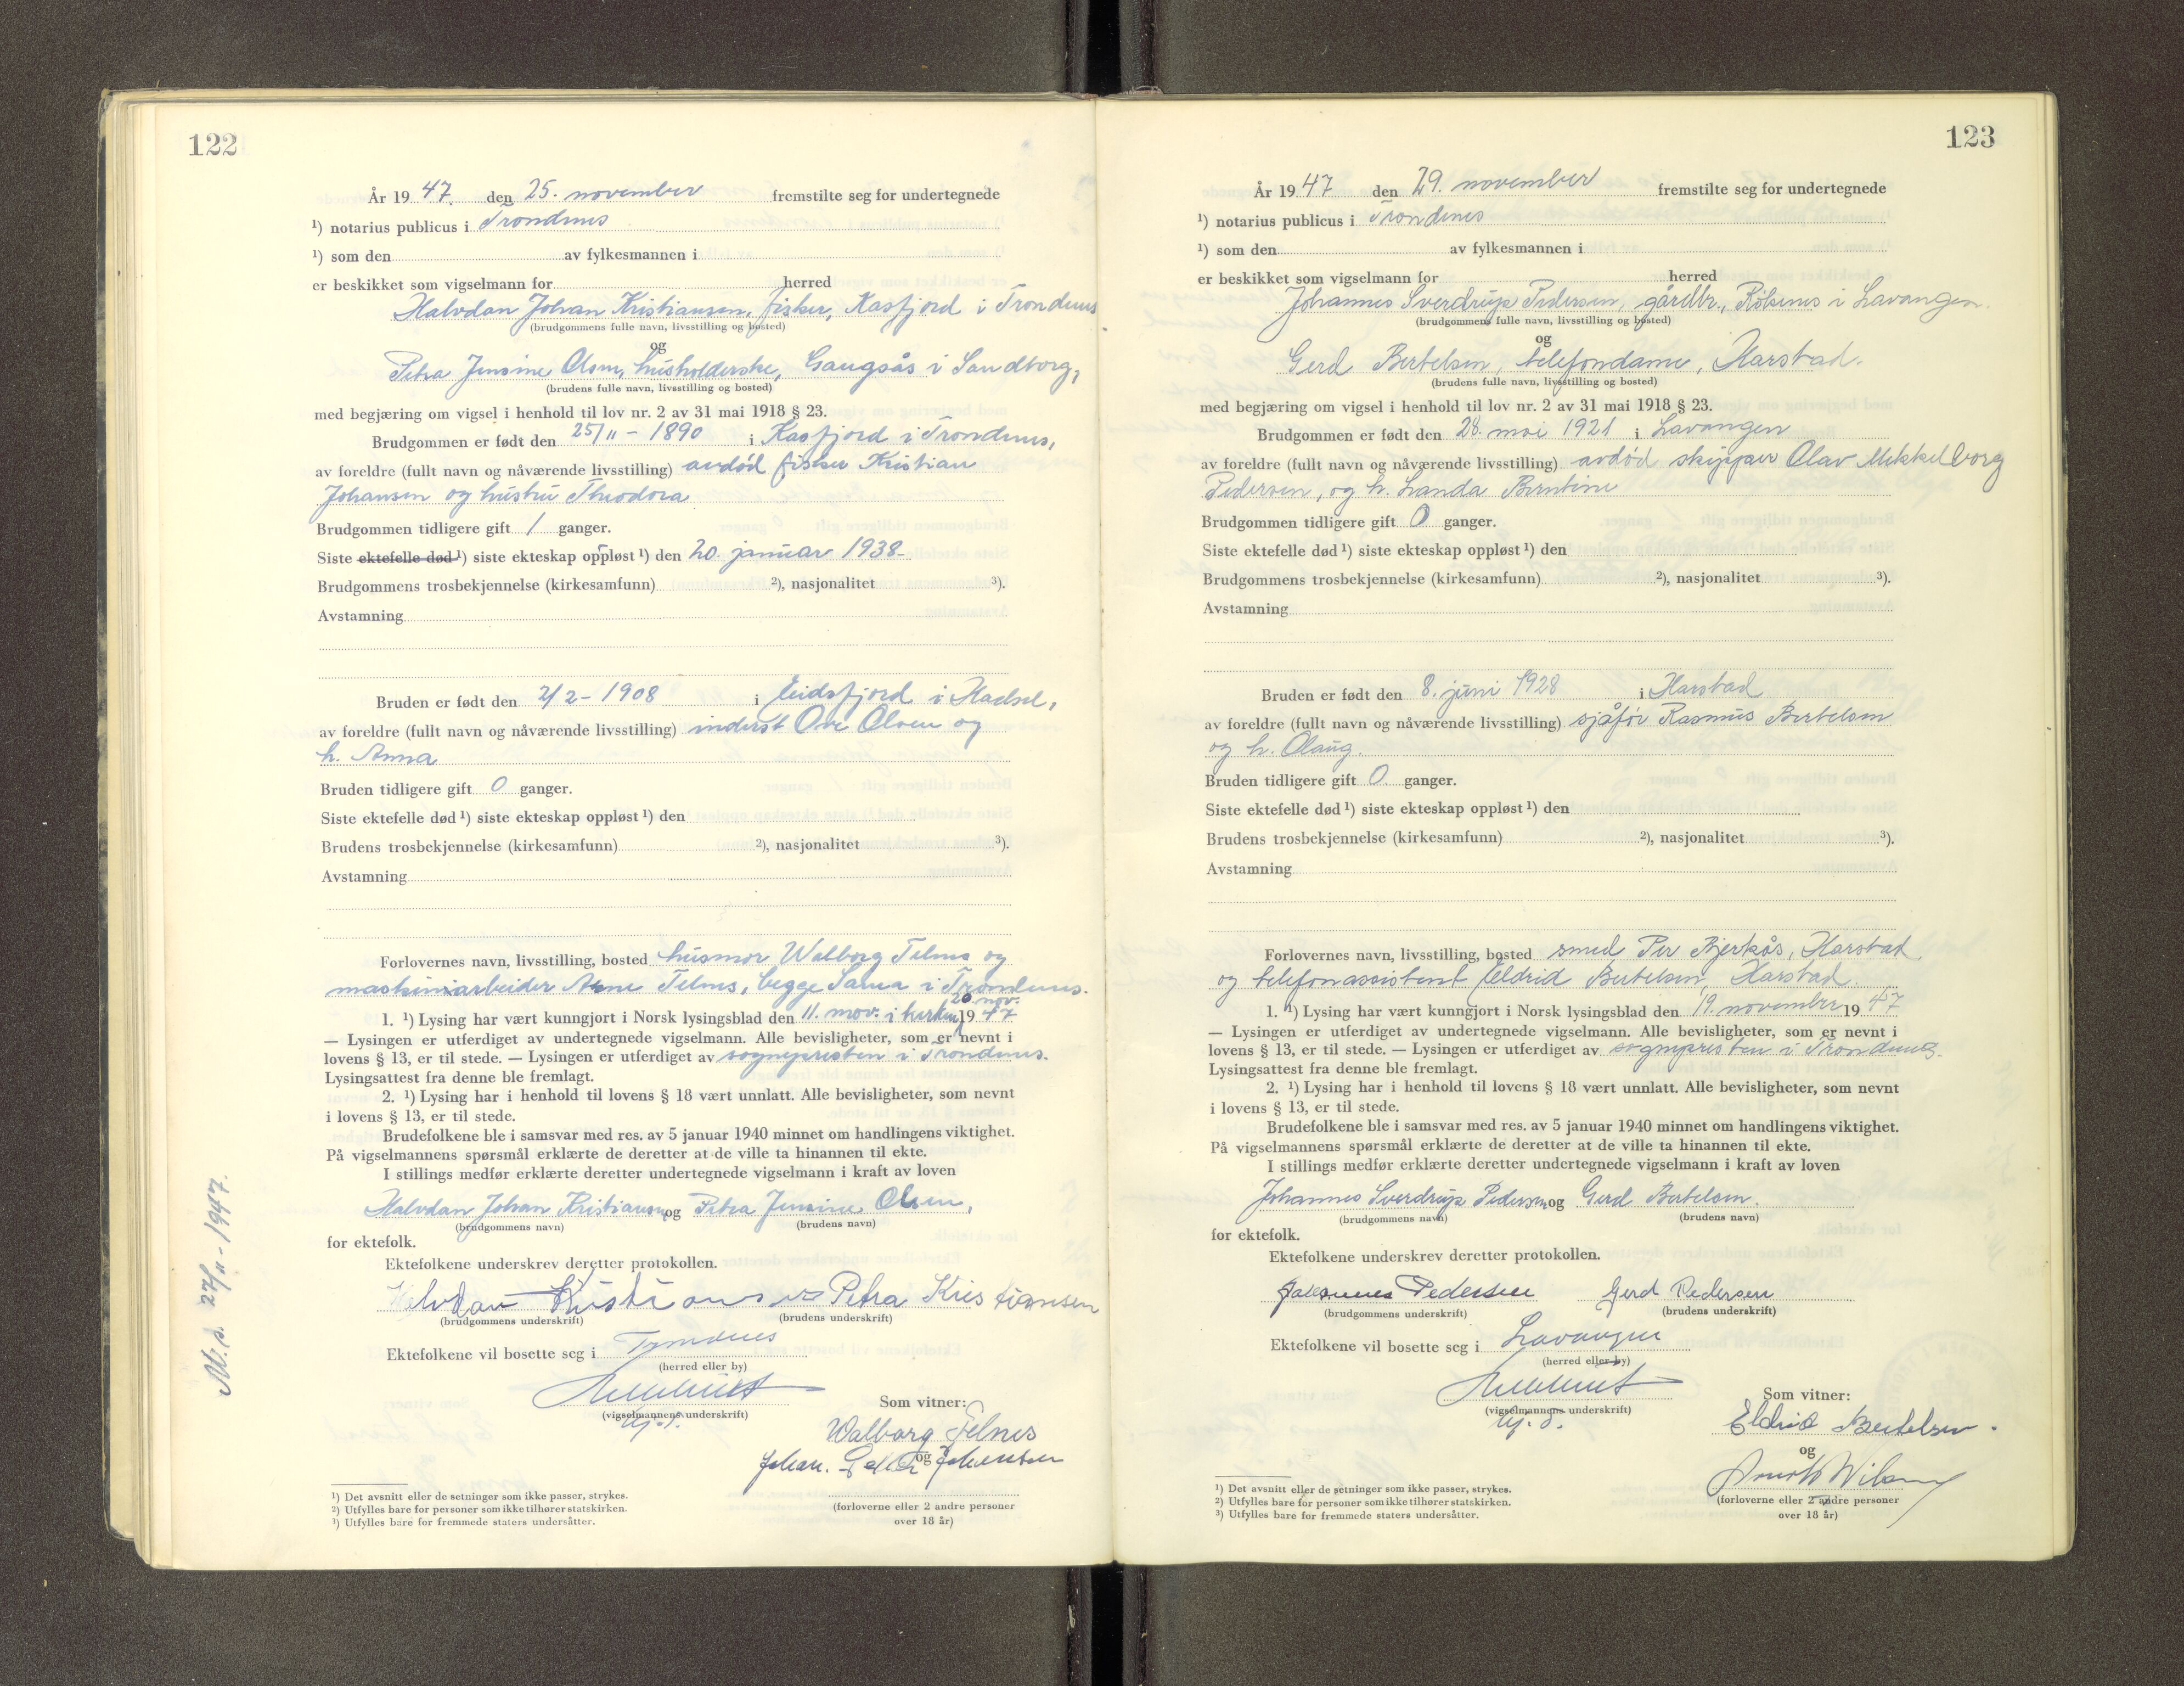 122
År 19 47. den 25. november fremstilte seg for undertegnede
¹) notarius publicus i Trondenes
¹) som den av fylkesmannen i
er beskikket som vigselmann for herred
Halvdan Johan Kristiansen, fisker, Kasfjord i Trondenes
(brudgommens fulle navn, livsstilling og bosted)
og
Petra Jensine Olsen, husholderske, Gaugsås i Sandtorg,
(brudens fulle navn, livsstilling og bosted)
med begjæring om vigsel i henhold til lov nr. 2 av 31 mai 1918 § 23.
Brudgommen er født den 25/11 - 1890 i Kasfjord i Trondenes,
av foreldre (fullt navn og nåværende livsstilling) avdød fisker Kristian
Johansen og hustru Theodora
Brudgommen tidligere gift 1 ganger.
Siste ektefelle død ¹) siste ekteskap oppløst ¹) den 20. januar 1938-
Brudgommens trosbekjennelse (kirkesamfunn) ²), nasjonalitet ³).
Avstamning
Bruden er født den 2/2 - 1908 i Eidsfjord i Hadsel,
av foreldre (fullt navn og nåværende livsstilling) inderst Ove Olsen og
h. Anna
Bruden tidligere gift 0 ganger.
Siste ektefelle død ¹) siste ekteskap oppløst ¹) den
Brudens trosbekjennelse (kirkesamfunn) ²), nasjonalitet ³).
Avstamning
Forlovernes navn, livsstilling, bosted husmor Walborg Telnes og
maskinarbeider Arne Telnes, begge Sama i Trondenes.
20 nov.
1. ¹) Lysing har vært kunngjort i Norsk lysingsblad den 11. nov. i kirken 19 47
— Lysingen er utferdiget av undertegnede vigselmann. Alle bevisligheter, som er nevnt i
lovens § 13, er til stede. — Lysingen er utferdiget av sognepresten i Trondenes.
Lysingsattest fra denne ble fremlagt.
2. ¹) Lysing har i henhold til lovens § 18 vært unnlatt. Alle bevisligheter, som nevnt
i lovens § 13, er til stede.
Brudefolkene ble i samsvar med res. av 5 januar 1940 minnet om handlingens viktighet.
På vigselmannens spørsmål erklærte de deretter at de ville ta hinannen til ekte.
I stillings medfør erklærte deretter undertegnede vigselmann i kraft av loven
Halvdan Johan Kristiansen og Petra Jensine Olsen,
(brudgommens navn) (brudens navn)
for ektefolk.
Ektefolkene underskrev deretter protokollen.
Halvdan Kristiansen Petra Kristiansen
(brudgommens underskrift) (brudens underskrift)
Ektefolkene vil bosette seg i Trondenes
(herred eller by)
(vigselmannens underskrift)
Som vitner:
Walborg Telnes
og
Johan. Johansen
(forloverne eller 2 andre personer
over 18 år)
¹) Det avsnitt eller de setninger som ikke passer, strykes.
²) Utfylles bare for personer som ikke tilhører statskirken.
³) Utfylles bare for fremmede staters undersåtter.
M. s. 27/11 - 1947.
123
År 19 47 den 29. november fremstilte seg for undertegnede
¹) notarius publicus i Trondenes
¹) som den av fylkesmannen i
er beskikket som vigselmann for herred
Johannes Sverdrup Pedersen, gårdbr., Rølsenes i Lavangen
(brudgommens fulle navn, livsstilling og bosted)
og
Gerd Bertelsen, telefondame, Harstad.
(brudens fulle navn, livsstilling og bosted)
med begjæring om vigsel i henhold til lov nr. 2 av 31 mai 1918 § 23.
Brudgommen er født den 28. mai 1921 i Lavangen
av foreldre (fullt navn og nåværende livsstilling) avdød skipper Olav Mekkelborg
Pedersen, og h. Landa Berntine
Brudgommen tidligere gift 0 ganger.
Siste ektefelle død ¹) siste ekteskap oppløst ¹) den
Brudgommens trosbekjennelse (kirkesamfunn) ²), nasjonalitet ³).
Avstamning
Bruden er født den 8. juni 1928 i Harstad
av foreldre (fullt navn og nåværende livsstilling) sjåfør Rasmus Bertelsen
og h. Olaug.
Bruden tidligere gift 0. ganger.
Siste ektefelle død ¹) siste ekteskap oppløst ¹) den
Brudens trosbekjennelse (kirkesamfunn) ²), nasjonalitet ³).
Avstamning
Forlovernes navn, livsstilling, bosted smed Per Bjerkås, Harstad
og telefonassistent Eldrid Bertelsen, Harstad.
1. ¹) Lysing har vært kunngjort i Norsk lysingsblad den 19. november 19 47
— Lysingen er utferdiget av undertegnede vigselmann. Alle bevisligheter, som er nevnt i
lovens § 13, er til stede. — Lysingen er utferdiget av sognepresten i Trondenes.
Lysingsattest fra denne ble fremlagt.
2. ¹) Lysing har i henhold til lovens § 18 vært unnlatt. Alle bevisligheter, som nevnt
i lovens § 13, er til stede.
Brudefolkene ble i samsvar med res. av 5 januar 1940 minnet om handlingens viktighet.
På vigselmannens spørsmål erklærte de deretter at de ville ta hinannen til ekte.
I stillings medfør erklærte deretter undertegnede vigselmann i kraft av loven
Johannes Sverdrup Pedersen og Gerd Bertelsen.
(brudgommens navn) (brudens navn)
for ektefolk.
Ektefolkene underskrev deretter protokollen.
Johannes Pedersen Gerd Pedersen
(brudgommens underskrift) (brudens underskrift)
Ektefolkene vil bosette seg i Lavangen
(herred eller by)
(vigselmannens underskrift)
Som vitner:
Eldrid Bertelsen.
og
(forloverne eller 2 andre personer
over 18 år)
¹) Det avsnitt eller de setninger som ikke passer, strykes.
²) Utfylles bare for personer som ikke tilhører statskirken.
³) Utfylles bare for fremmede staters undersåtter.